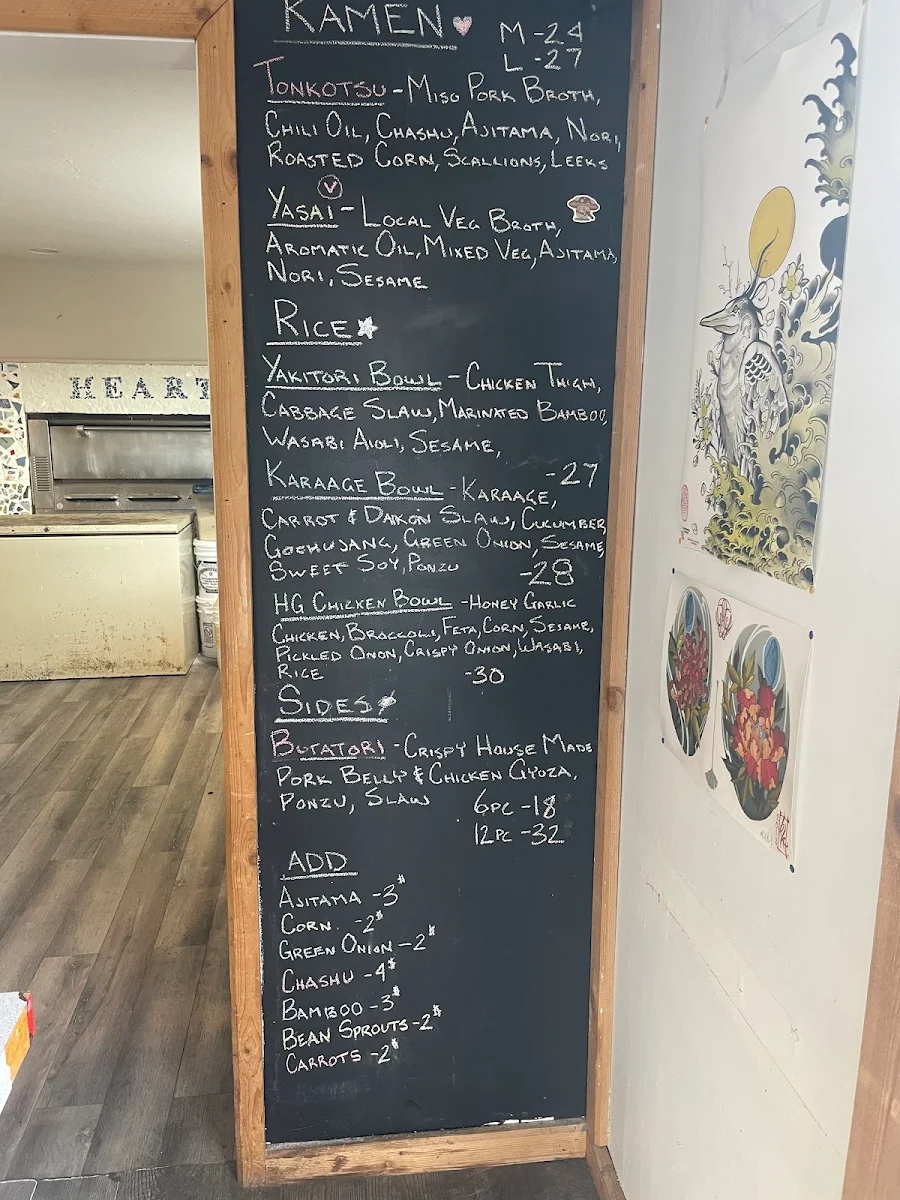 RAMEN
M -24
L -27
TONKOTSU - MISO PORK BROTH,
CHILI OIL, CHASHU, AJITAMA, NORI,
ROASTED CORN, SCALLIONS, LEEKS
V
YASAI - LOCAL VEG BROTH,
AROMATIC OIL, MIXED VEG, AJITAMA,
NORI, SESAME
RICE
YAKITORI BOWL - CHICKEN THIGH,
CABBAGE SLAW, MARINATED BAMBOO,
WASABI AIOLI, SESAME,
-27
KARAAGE BOWL - KARAAGE,
CARROT & DAIKON SLAW, CUCUMBER
GOCHUJANG, GREEN ONION, SESAME,
SWEET SOY, PONZU -28
HG CHICKEN BOWL - HONEY GARLIC
CHICKEN, BROCCOLI, FETA, CORN, SESAME,
PICKLED ONION, CRISPY ONION, WASABI,
RICE -30
SIDES
BUTATORI - CRISPY HOUSE MADE
PORK BELLY & CHICKEN GYOZA,
PONZU, SLAW 6PC -18
12PC -32
ADD
AJITAMA -3$
CORN -2$
GREEN ONION -2$
CHASHU -4$
BAMBOO -3$
BEAN SPROUTS -2$
CARROTS -2$
HEART